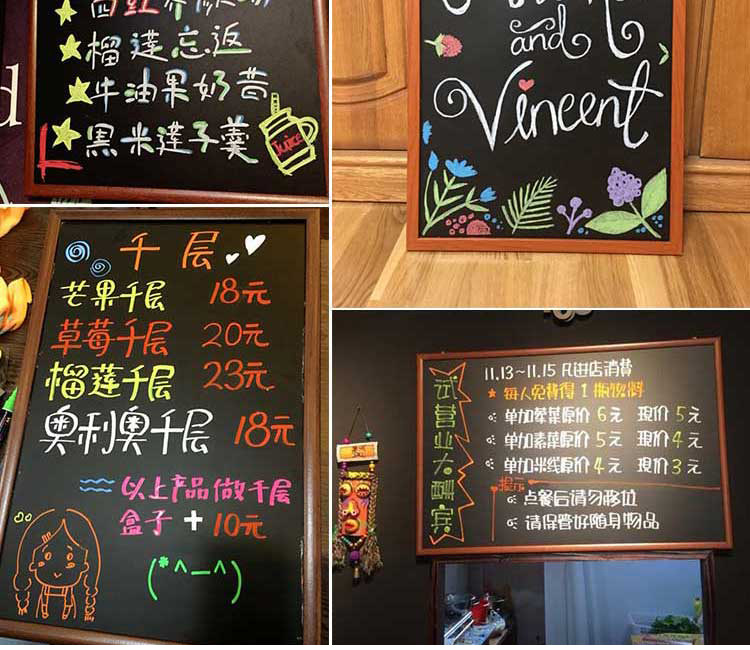 榴莲忘返
牛油果奶昔
黑米莲子羹
Juice
and
Vincent
千层
芒果千层 18元
草莓千层 20元
榴莲千层 23元
奥利奥千层 18元
以上产品做千层
盒子+10元
(*^—^)
试营业大酬宾
11.13~11.15 凡进店消费
★每人免费得1瓶饮料
单加荤菜原价6元 现价5元
单加素菜原价5元 现价4元
单加米线原价4元 现价3元
提示
点餐后请勿移位
请保管好随身物品